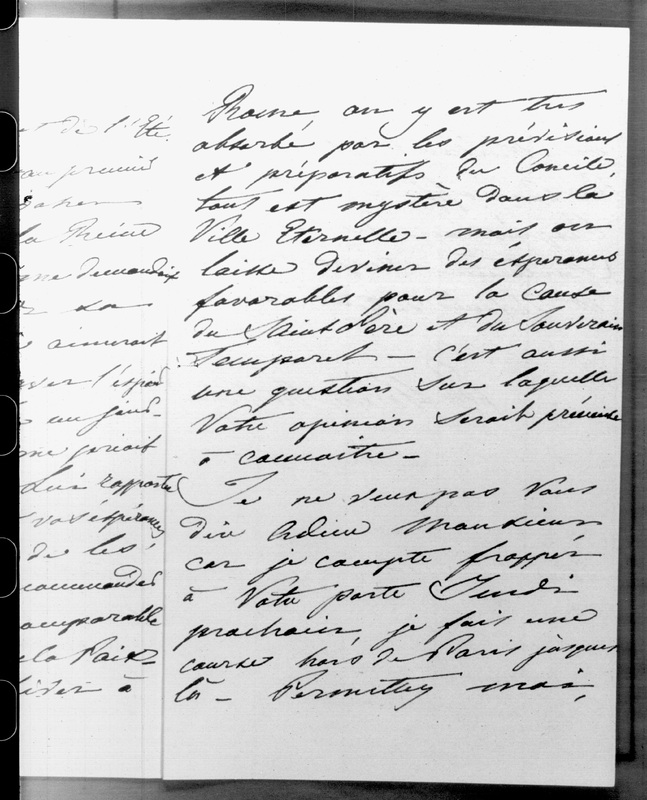 et de l'Eté.
au premier
la Reine
me demandait
sa
aimerait
avec l'espoir
au Gand-
me priait
Lui rapporter
vos espérances
de les
commander
comparable
de la Paix-
à
Rome, on y est très
absorbé par les prévisions
et préparatifs du Concile,
tout est mystère dans la
Ville Eternelle - mais on
laisse deviner des éspérances
favorables pour la cause
du Saint Père et du Souverain
Temporel - c'est aussi
une question sur laquelle
Votre opinion serait précieuse
à connaitre -
Je ne veux pas Vous
dire Adieu Monsieur
car je compte frapper
à Votre porte Jeudi
prochain, je fais une
course hors de Paris jusques
là - Permettez moi,